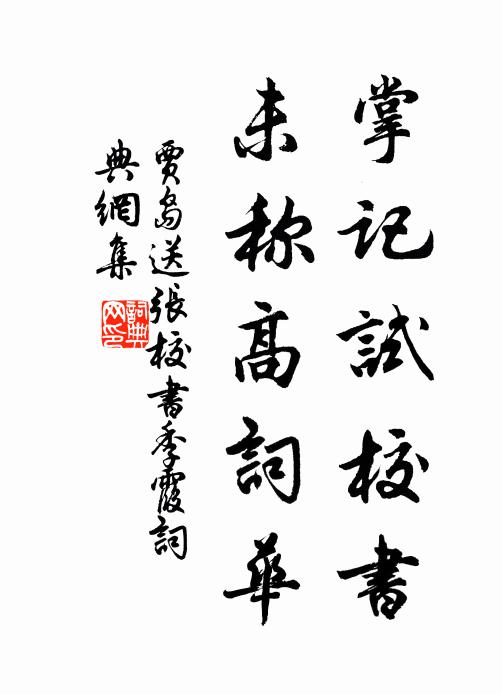 掌记試校書
未称高詞華
賈島送張校書季霞詞
典網集
詞典网印